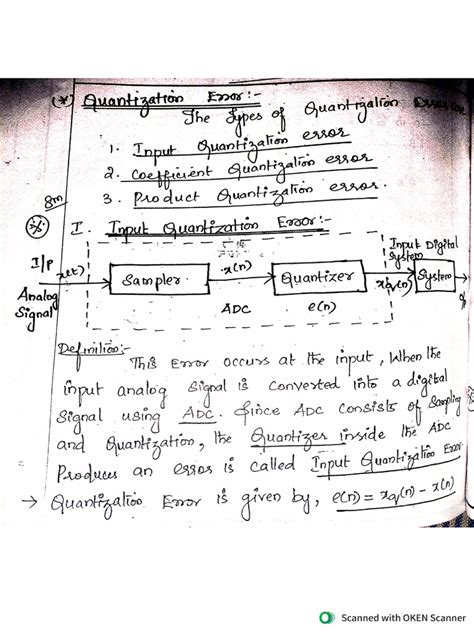 (*) Quantization Error :-
The Types of Quantization Error are
1. Input Quantization error
2. Coefficient Quantization error
3. Product Quantization error.
8m
I. Input Quantization Error:-
I/P
Analog
Signal
x(t)
Sampler
x(n)
Quantizer
xq(n)
Input Digital
System
System
ADC
e(n)
Definition:-
This Error occurs at the input, When the
input analog signal is converted into a digital
Signal using ADC. Since ADC consists of Sampling
and Quantization, the Quantizer inside the ADC
Produces an error is called Input Quantization Error
→ Quantization Error is given by, e(n) = xq(n) - x(n)
Scanned with OKEN Scanner